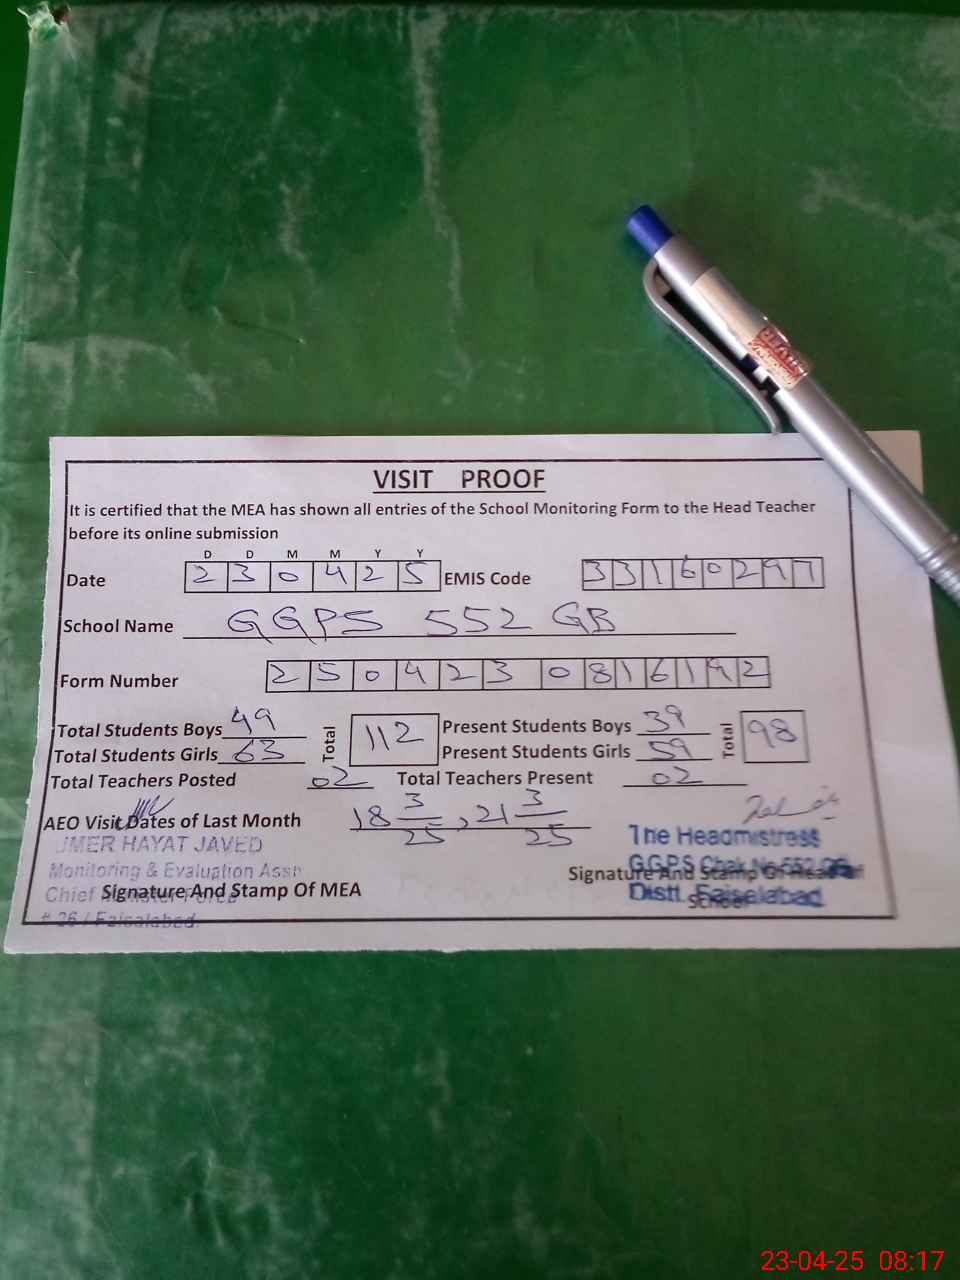 VISIT PROOF
It is certified that the MEA has shown all entries of the School Monitoring Form to the Head Teacher
before its online submission
D D M M Y Y
Date 2 3 0 4 2 5 EMIS Code 3 3 1 6 0 2 9 7
School Name GGPS 552 GB
Form Number 2 5 0 4 2 3 0 8 1 6 1 9 2
Total Students Boys 49 Total 112 Present Students Boys 39 Total 98
Total Students Girls 63 Present Students Girls 59
Total Teachers Posted 02 Total Teachers Present 02
AEO Visit Dates of Last Month 18 3/25, 21 3/25
UMER HAYAT JAVED
Monitoring & Evaluation Asst
Chief Minister Force
# 36 / Faisalabad.
Signature And Stamp Of MEA
The Headmistress
G.G.P.S Chak No 552 GB
Distt. Faiselabad
Signature And Stamp Of Head of
School
23-04-25 08:17